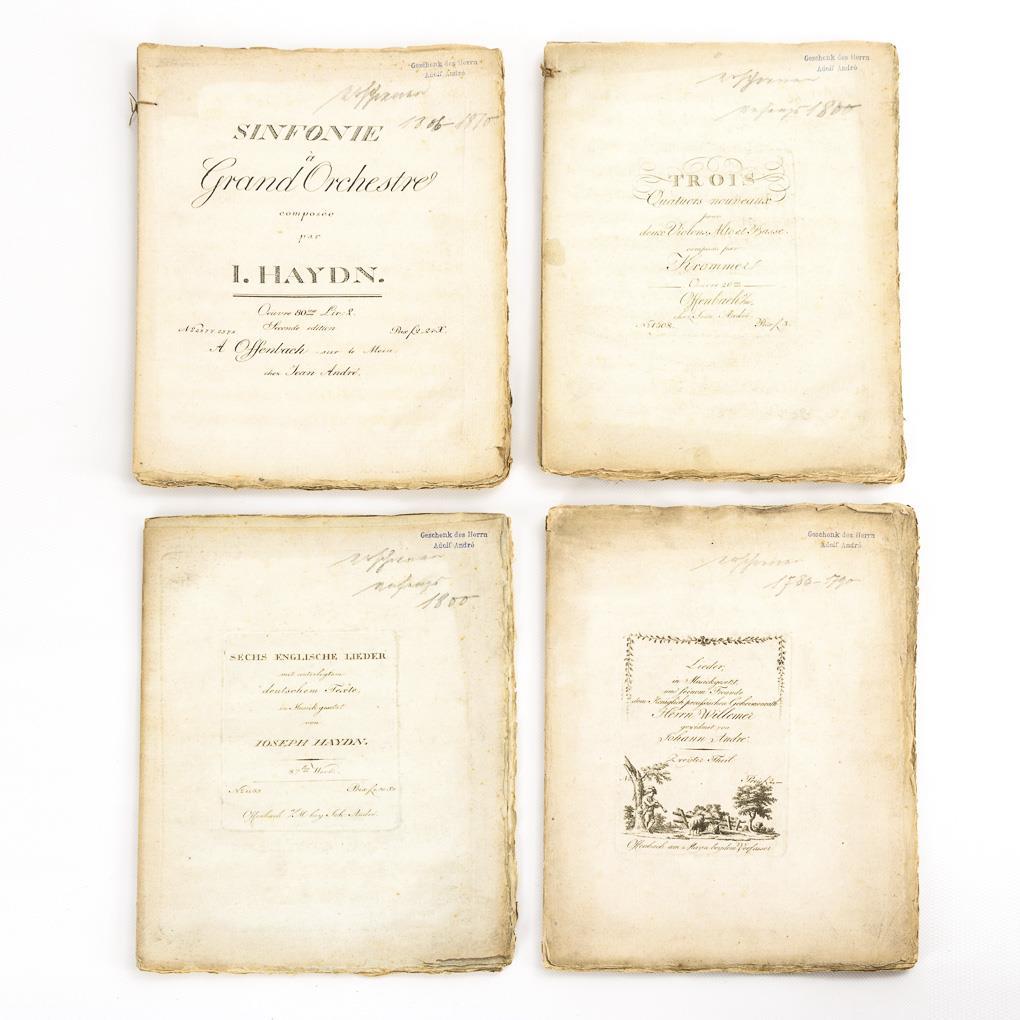 Geschenk des Herrn
Adolf André
erschienen
SINFONIE
à
Grand Orchestre
composée
par
I. HAYDN.
Oeuvre 80me Liv: 2.
Seconde édition
A Offenbach sur le Mein,
chez Jean André.
Geschenk des Herrn
Adolf André
erschienen
anfangs 1800
TROIS
Quatuors nouveaux
pour
deux Violons, Alto et Basse.
composés par
Krommer
Oeuvre 26me
Offenbach
chez Jean André.
No. 1508. Prix f. 3.
Geschenk des Herrn
Adolf André
erschienen
anfangs
1800
SECHS ENGLISCHE LIEDER
mit unterlegtem
deutschem Texte,
in Musik gesetzt
von
IOSEPH HAYDN.
Offenbach a/M bey Joh: André.
Geschenk des Herrn
Adolf André
erschienen
1780-1790
Lieder,
in Musick gesetzt,
und seinem Freunde
dem Königlich preussischen Geheimenrath
Herrn Willemer
gewidmet von
Johann André.
Zweiter Theil
Offenbach am Mayn beydem Verfasser